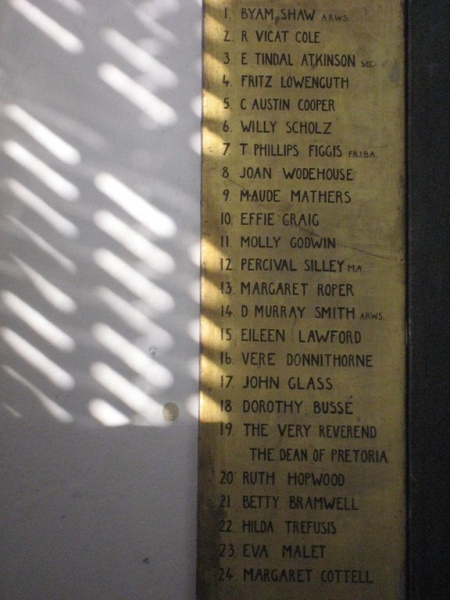 1. BYAM SHAW A.R.W.S.
2. R VICAT COLE
3. E TINDAL ATKINSON SEC:
4. FRITZ LOWENGUTH
5. C AUSTIN COOPER
6. WILLY SCHOLZ
7. T PHILLIPS FIGGIS F.R.I.B.A.
8. JOAN WODEHOUSE
9. MAUDE MATHERS
10. EFFIE CRAIG
11. MOLLY GODWIN
12. PERCIVAL SILLEY M.A.
13. MARGARET ROPER
14. D MURRAY SMITH A.R.W.S.
15. EILEEN LAWFORD
16. VERE DONNITHORNE
17. JOHN GLASS
18. DOROTHY BUSSÉ
19. THE VERY REVEREND
THE DEAN OF PRETORIA
20 RUTH HOPWOOD
21. BETTY BRAMWELL
22. HILDA TREFUSIS
23. EVA MALET
24. MARGARET COTTELL